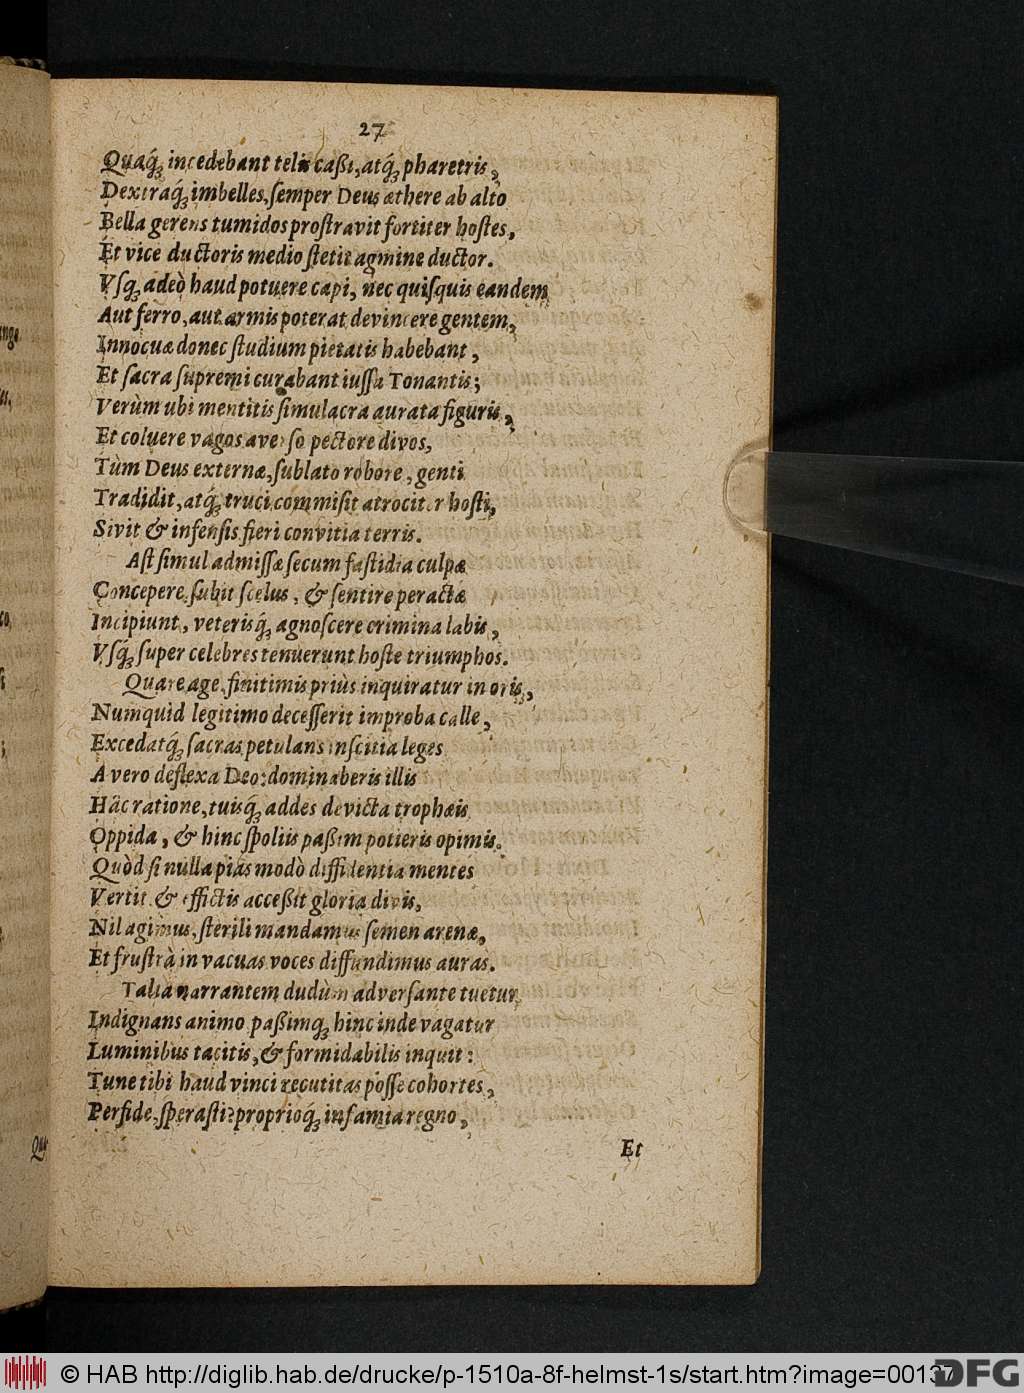 27
Quaq́; incedebant telis caßi, atq́; pharetris,
Dextraq́; imbelles, semper Deus æthere ab alto
Bella gerens tumidos prostravit fortiter hostes,
Et vice ductoris medio stetit agmine ductor.
Vsq; adeò haud potuere capi, nec quisquis eandem
Aut ferro, aut armis poterat devincere gentem,
Innocuæ donec studium pietatis habebant,
Et sacra supremi curabant iussa Tonantis;
Verùm ubi mentitis simulacra aurata figuris,
Et coluere vagos averso pectore divos,
Tùm Deus externæ, sublato robore, genti
Tradidit, atq́; truci commisit atrociter hosti,
Sivit & infensis fieri convitia terris.
Ast simul admissæ secum fastidia culpæ
Concepere, subit scelus, & sentire peractæ
Incipiunt, veterisq́; agnoscere crimina labis,
Vsq́; super celebres tenuerunt hoste triumphos.
Quare age, finitimis priùs inquiratur in oris,
Numquid legitimo decesserit improba calle,
Excedatq́; sacras petulans inscitia leges
A vero deflexa Deo: dominaberis illis
Hâc ratione, tuisq́; addes devicta trophæis
Oppida, & hinc spoliis paßim potieris opimis.
Quòd si nulla pias modò diffidentia mentes
Vertit, & effictis acceßit gloria divis,
Nil agimus, sterili mandamus semen arenæ,
Et frustrà in vacuas voces diffundimus auras.
Talia narrantem dudùm adversante tuetur
Indignans animo paßimq; hinc inde vagatur
Luminibus tacitis, & formidabilis inquit:
Tune tibi haud vinci recutitas posse cohortes,
Perfide, sperasti? proprioq́; infamia regno,
Et
© HAB http://diglib.hab.de/drucke/p-1510a-8f-helmst-1s/start.htm?image=00137
DFG